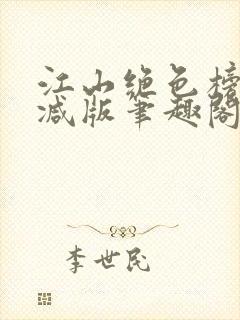 江山绝色榜
减版笔趣阁
李世民